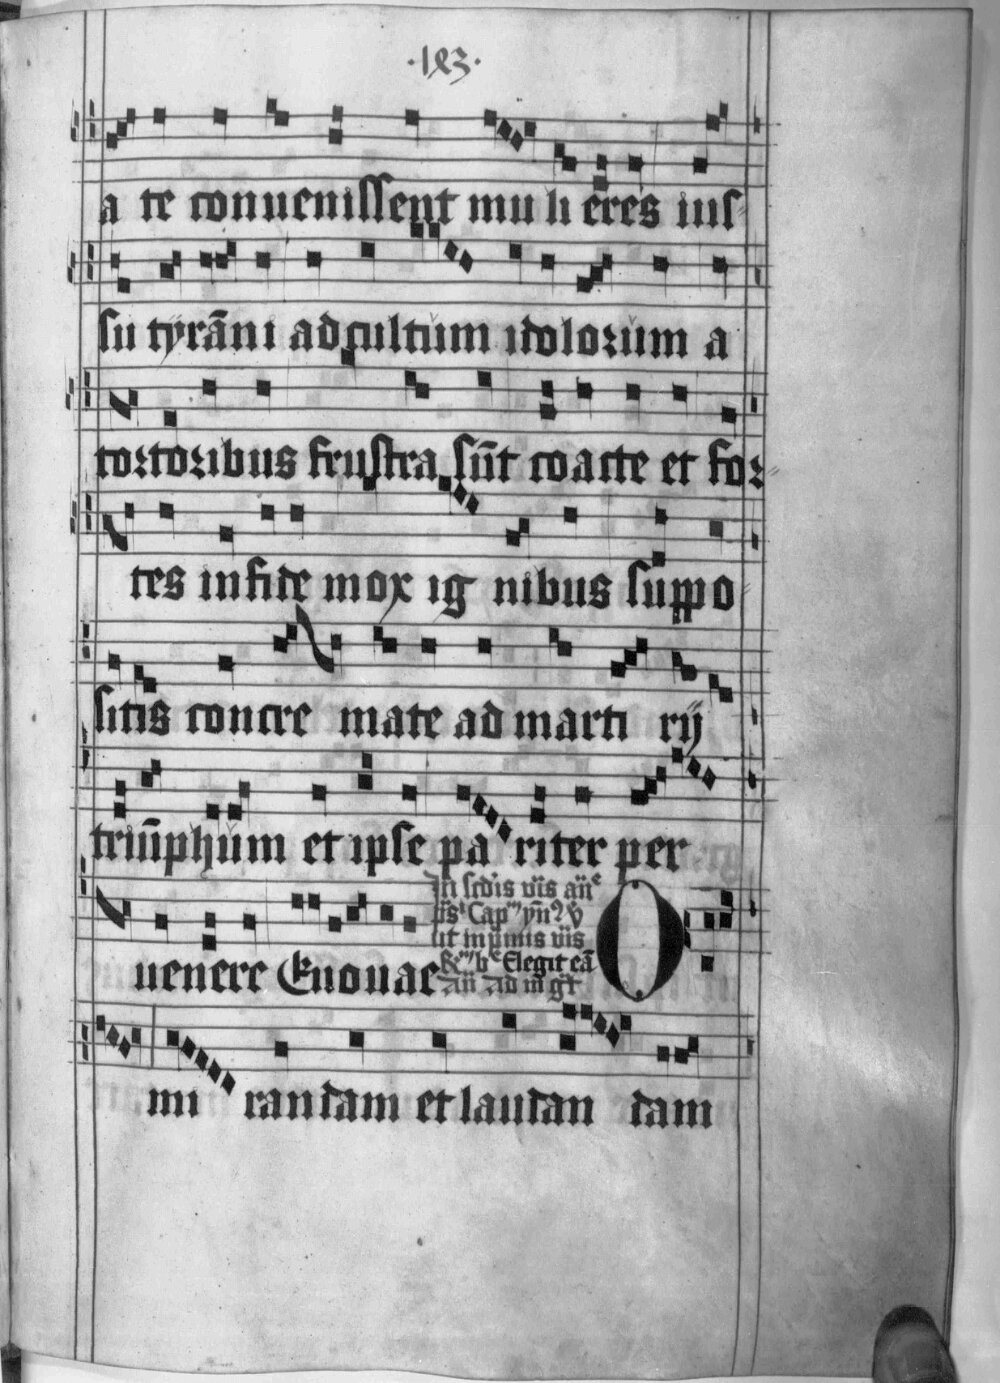 ·183·
a te conuenissent mu li eres ius⸗
su tyrāni ad cultum idolorum a
tortoribus frustra sūt coacte et for⸗
tes in fide mox ig nibus suppo
sitis concre mate ad marti rij
triūphum et ipse pa riter per
In scdis vīs añe
Capm yñ
ut in primis vīs
Elegit eā
añ ad mgt
uenere Euouae O
mi randam et laudan dam